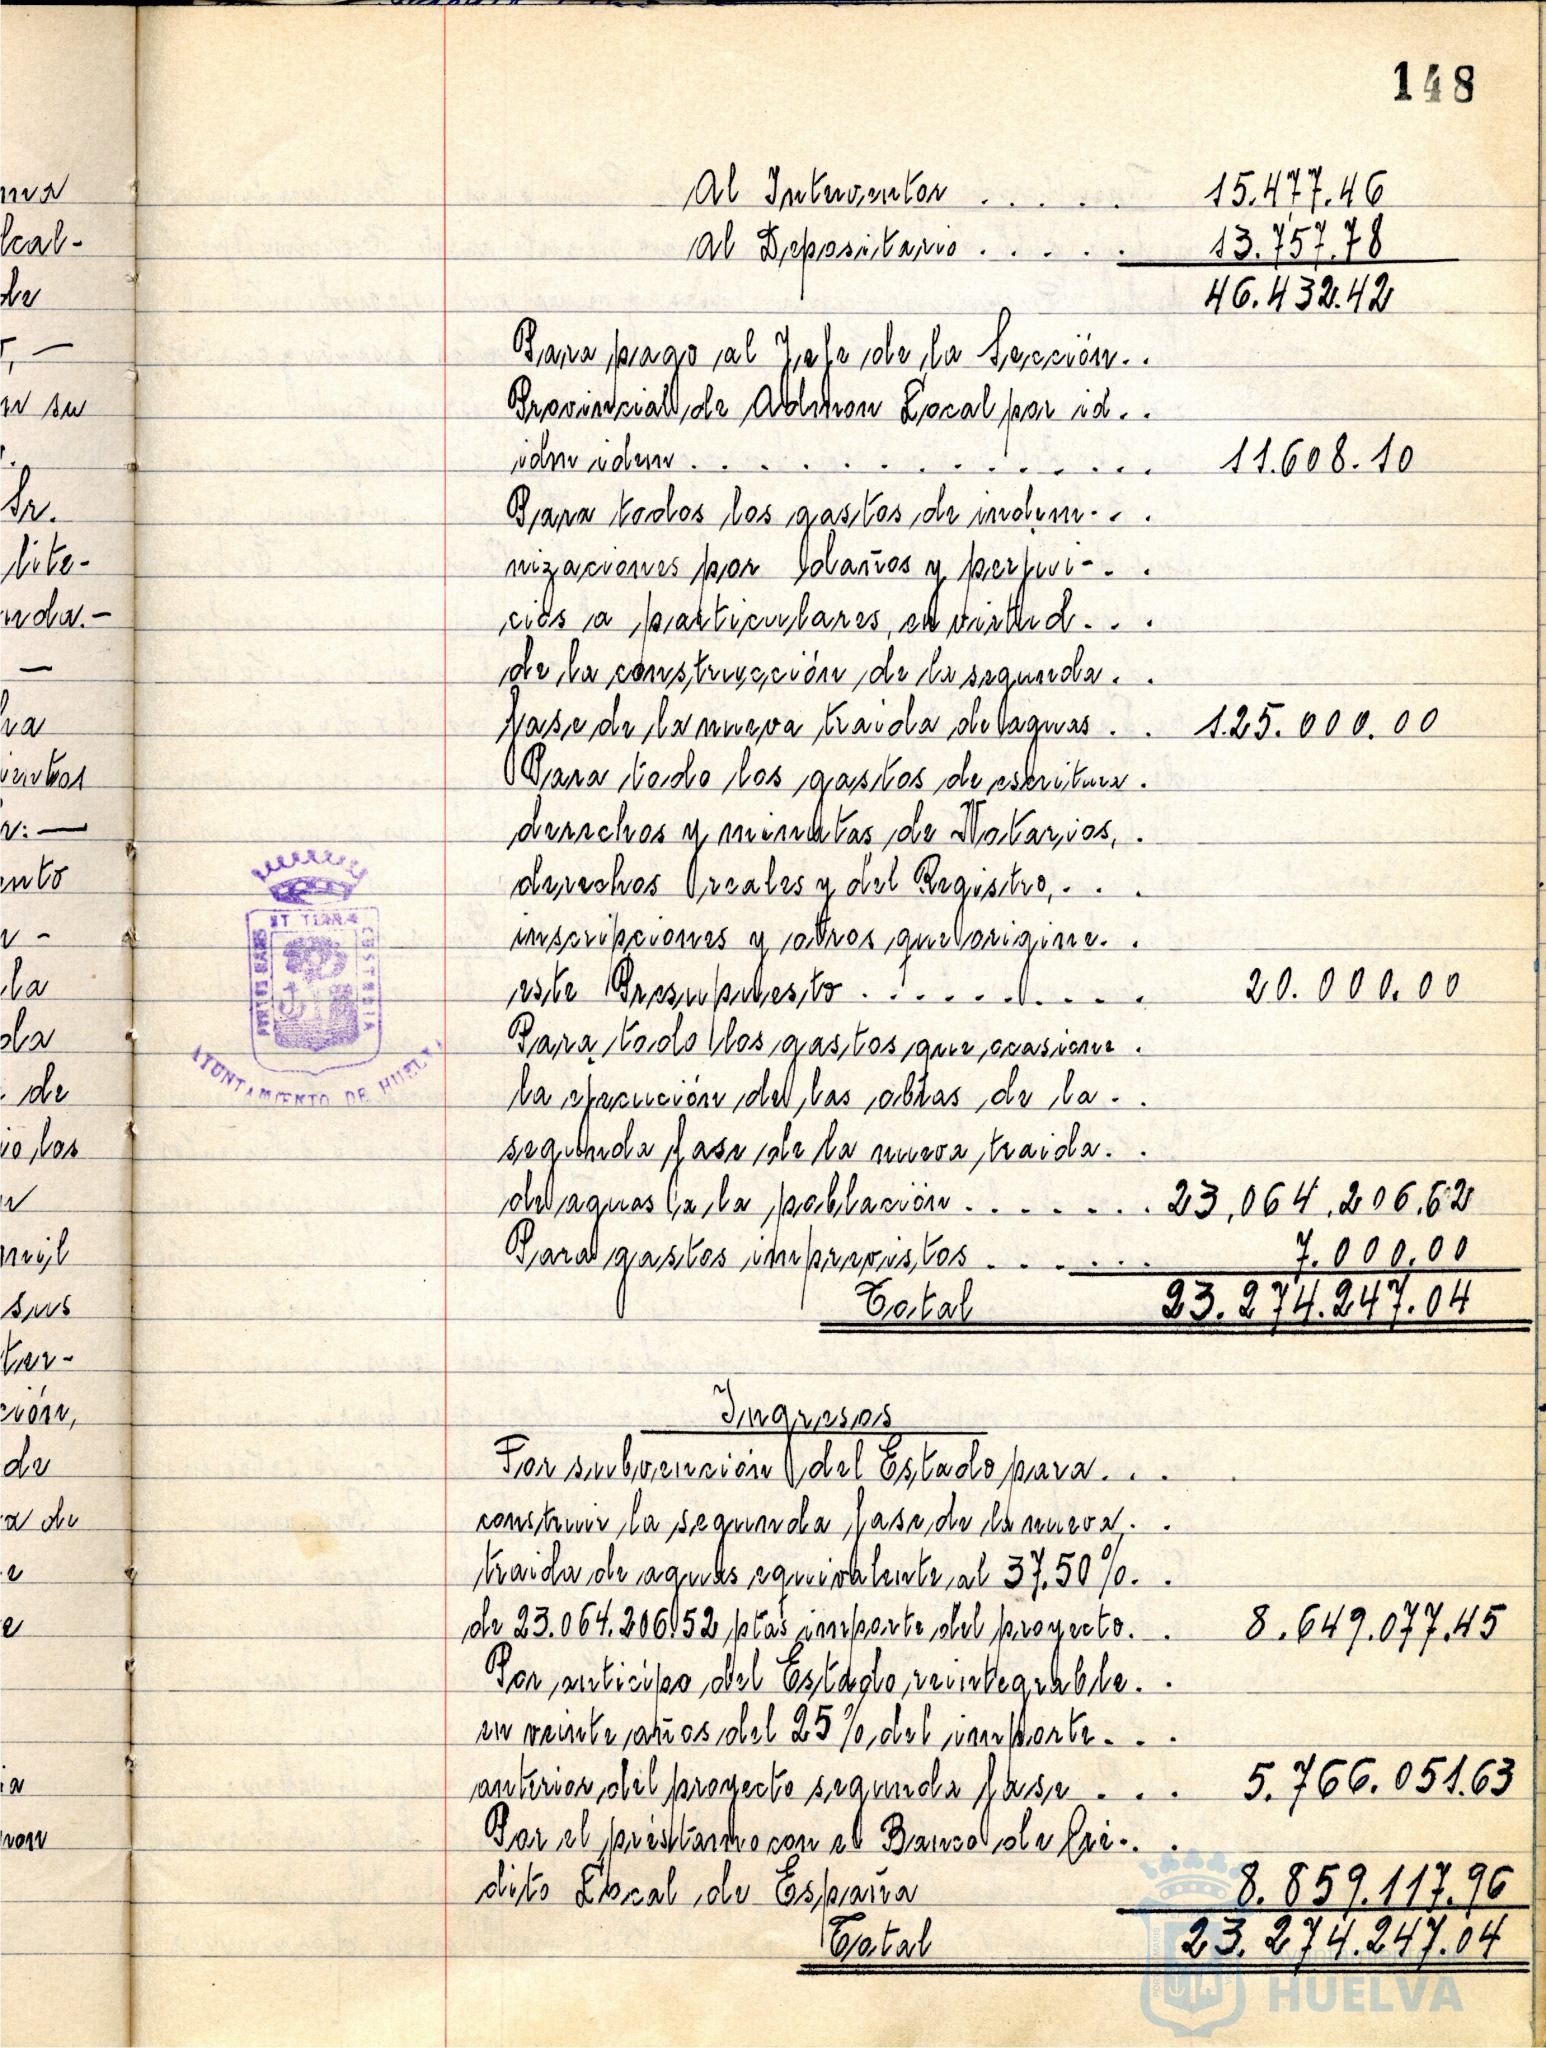 148
Al Interventor . . . . . 15.477.46
Al Depositario . . . . . 13.757.78
46.432.42
Para pago al Jefe de la Sección. .
Provincial de Admon Local por id. .
idm idem . . . . . . . . . . 11.608.10
Para todos los gastos de indem- . .
nizaciones por daños y perjui- . .
cios a particulares, en virtud . . .
de la construcción de la segunda . .
fase de la nueva traida de aguas . . 125.000.00
Para todo los gastos de escritura .
derechos y minutas de Notarios, .
derechos reales y del Registro, . . .
inscripciones y otros que origine . .
este Presupuesto . . . . . . . . 20.000.00
Para todo los gastos que ocasione .
la ejecución de las obras de la . .
segunda fase de la nueva traida . .
de aguas a la población . . . . . . . 23.064.206.62
Para gastos imprevistos . . . . . . 7.000.00
Total 23.274.247.04
Ingresos
Por subvención del Estado para . . .
construir la segunda fase de la nueva . .
traida de aguas equivalente al 37.50%. .
de 23.064.206.52 ptas importe del proyecto. . 8.649.077.45
Por anticipo del Estado reintegrable . .
en veinte años del 25% del importe . . .
anterior del proyecto segunda fase . . . 5.766.051.63
Por el préstamo con el Banco de Cré- . .
dito Local de España 8.859.117.96
Total 23.274.247.04
ma
lcal-
de
n su
Sr.
lite-
nda.-
ientos
ento
la
da
de
io los
mil
sus
ter-
ción,
de
a de
ron
PORTUS MARIS
ET TERRAE
CUSTODIA
AYUNTAMIENTO DE HUELVA
HUELVA